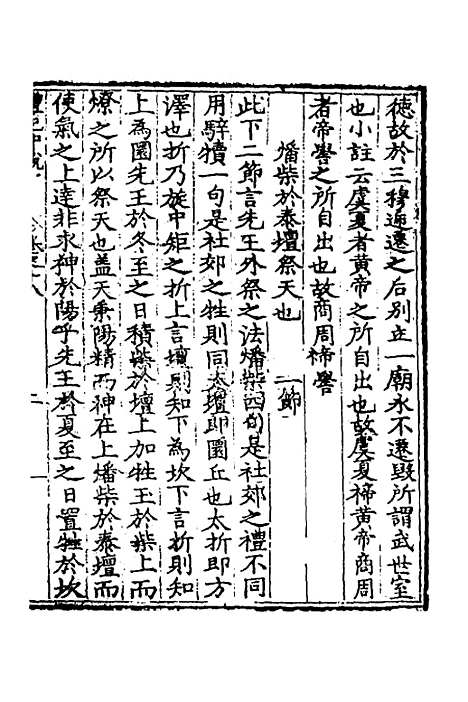 德故於三穆遞遷之后別立一廟永不遷毀所謂武世室
也小註云虞夏者黃帝之所自出也故虞夏禘黃帝商周
者帝嚳之所自出也故商周禘嚳
燔柴於泰壇祭天也 一節
此下二節言先王外祭之法燔柴四句是社郊之禮不同
用騂犢一句是社郊之牲則同太壇即圜丘也太折即方
澤也折乃旋中矩之折上言壇則知下為坎下言折則知
上為圜先王於冬至之日積柴於壇上加牲玉於柴上而
燎之所以祭天也盖天秉陽精而神在上燔柴於泰壇而
使氣之上達非求神於陽乎先王於夏至之日置牲於坎